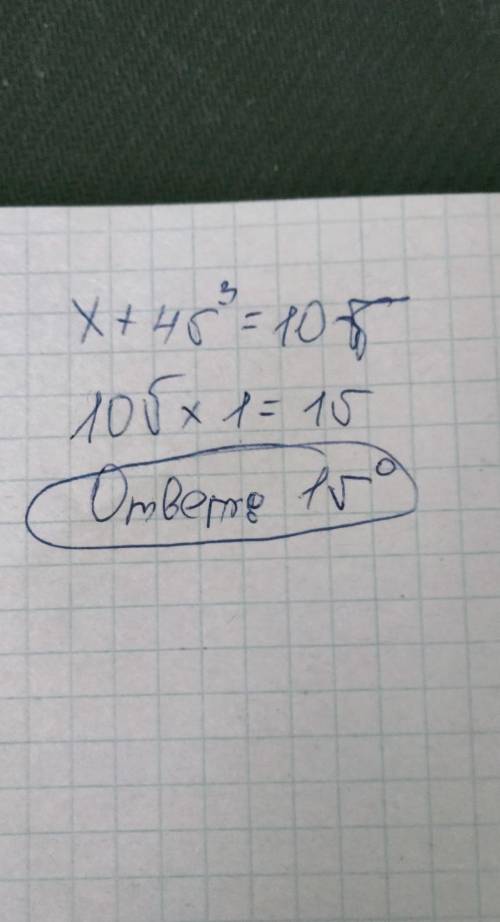 x + 45³ = 105
105 x 1 = 15
Ответ: 15°